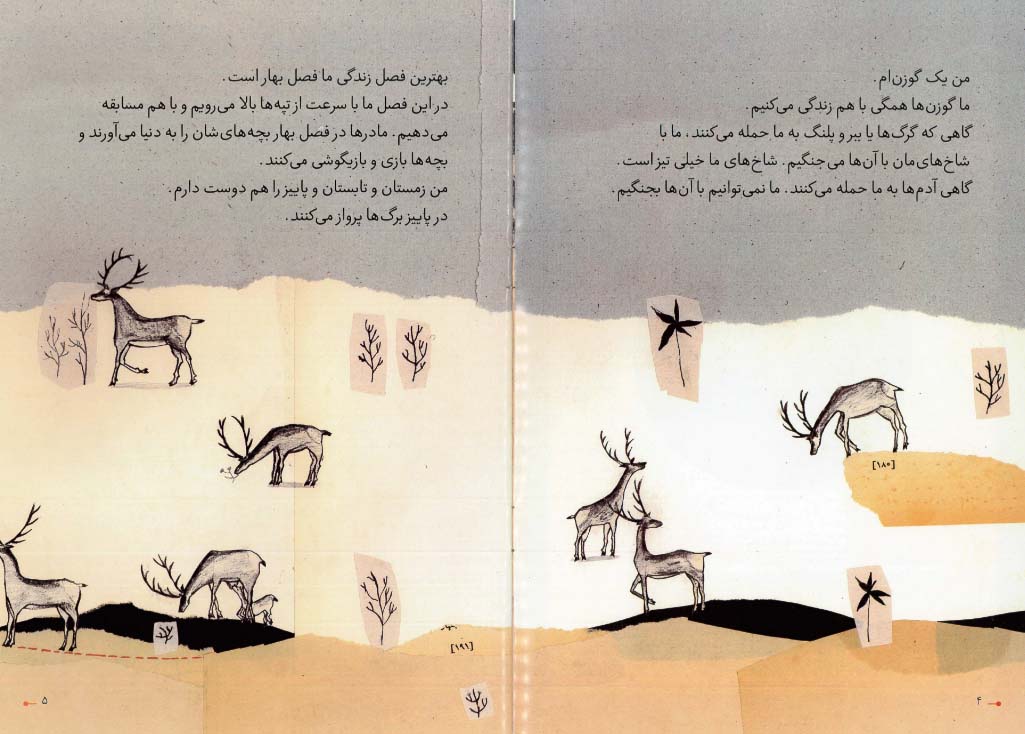 من یک گوزن‌ام.
ما گوزن‌ها همگی با هم زندگی می‌کنیم.
گاهی که گرگ‌ها یا ببر و پلنگ به ما حمله می‌کنند، ما با
شاخ‌های‌مان با آن‌ها می‌جنگیم. شاخ‌های ما خیلی تیز است.
گاهی آدم‌ها به ما حمله می‌کنند. ما نمی‌توانیم با آن‌ها بجنگیم.
[۱۸۰]
۴
بهترین فصل زندگی ما فصل بهار است.
در این فصل ما با سرعت از تپه‌ها بالا می‌رویم و با هم مسابقه
می‌دهیم. مادرها در فصل بهار بچه‌های‌شان را به دنیا می‌آورند و
بچه‌ها بازی و بازیگوشی می‌کنند.
من زمستان و تابستان و پاییز را هم دوست دارم.
در پاییز برگ‌ها پرواز می‌کنند.
[۱۹۱]
۵